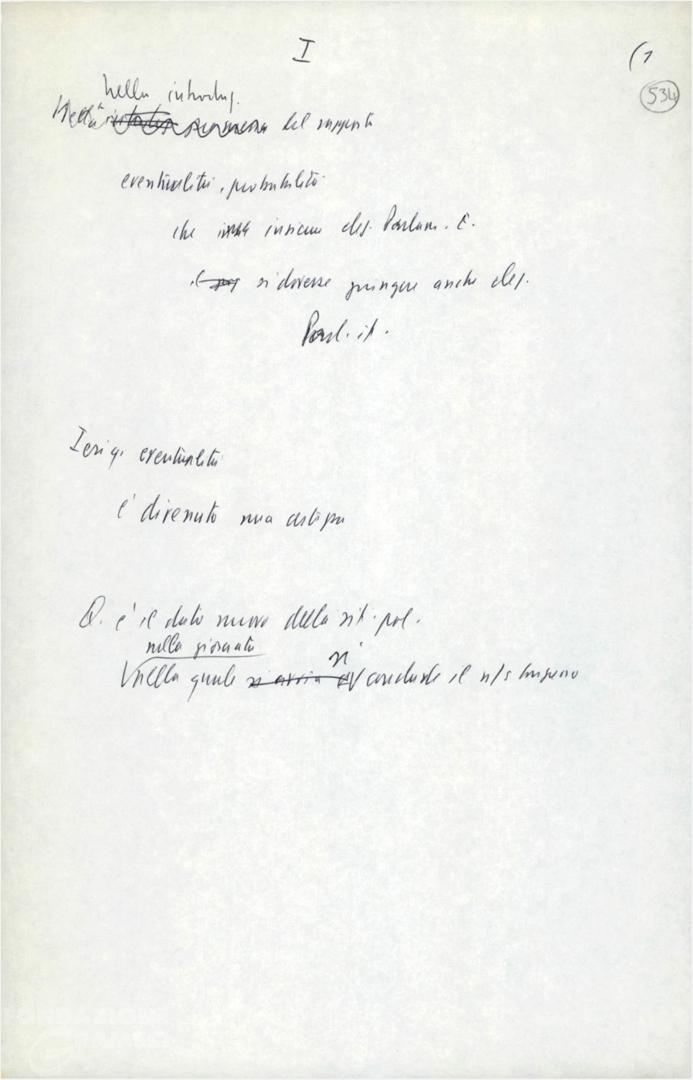 I
(1
534
nella introduz.
del rapporto
eventualità, probabilità
che insieme elez. Parlam. E.
si dovesse giungere anche elez.
Parl. it.
Ieri q. eventualità
è divenuto una certezza
Q. è il dato nuovo della sit. pol.
nella giornata
nella quale si conclude il n/s